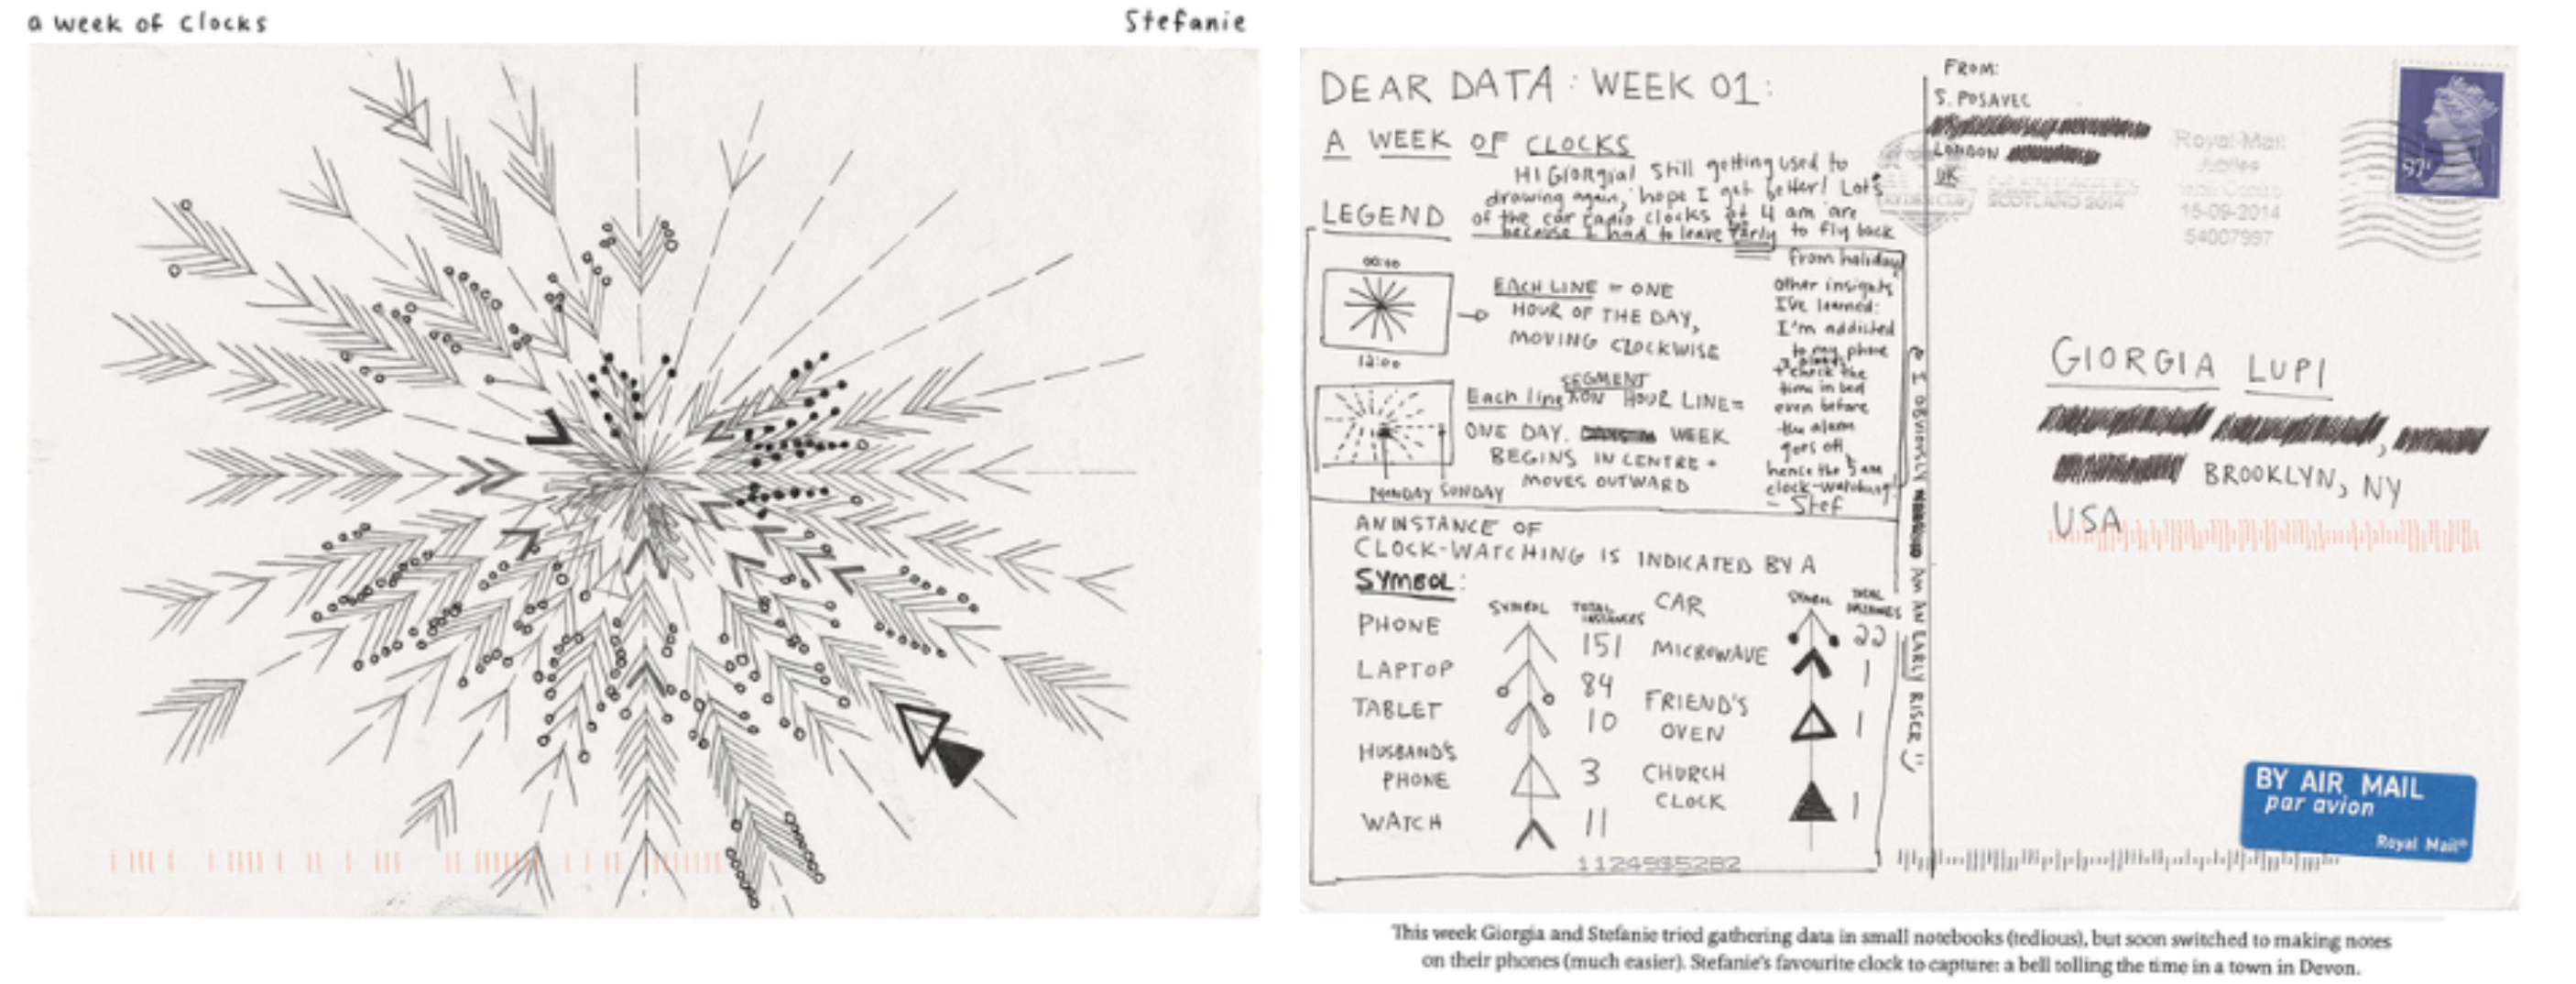 a week of clocks
Stefanie
DEAR DATA: WEEK 01:
A WEEK OF CLOCKS
HI Giorgia! Still getting used to
drawing again, hope I get better! Lots
of the car radio clocks at 4 am are
because I had to leave early to fly back
from holiday
LEGEND
00:00
12:00
EACH LINE = ONE
HOUR OF THE DAY,
MOVING CLOCKWISE
SEGMENT
Each line ON HOUR LINE=
ONE DAY. WEEK
BEGINS IN CENTRE +
MOVES OUTWARD
MONDAY SUNDAY
Other insights
I've learned:
I'm addicted
to my phone
+ check the
time in bed
even before
the alarm
goes off,
hence the 5 am
clock-watching!
- Stef
& I OBVIOUSLY AM AN EARLY RISER
AN INSTANCE OF
CLOCK-WATCHING IS INDICATED BY A
SYMBOL:
SYMBOL TOTAL INSTANCES
PHONE 151
LAPTOP 84
TABLET 10
HUSBAND'S
PHONE 3
WATCH 11
SYMBOL TOTAL INSTANCES
CAR 22
MICROWAVE 1
FRIEND'S
OVEN 1
CHURCH
CLOCK 1
11249$5282
FROM:
S. POSAVEC
LONDON
UK
Royal Mail
Jubilee
15-09-2014
54007997
SCOTLAND 2014
GIORGIA LUPI
BROOKLYN, NY
USA
BY AIR MAIL
par avion
Royal Mail
This week Giorgia and Stefanie tried gathering data in small notebooks (tedious), but soon switched to making notes
on their phones (much easier). Stefanie's favourite clock to capture: a bell tolling the time in a town in Devon.